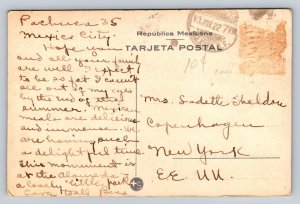 Pachuca 35
Mexico City.
Hope you
and all your family
are well. I expect
to be so fat I can't
see out of my eyes
by the end of the
summer. Mexican
meals are delicious
and immense. We
are having such
a delightful time.
This monument is
at the Alameda -
a lovely little park.
República Mexicana
TARJETA POSTAL
13 JUL 22
10¢
Mrs. Sadette Sheldon
Copenhagen
New York
EE. UU.